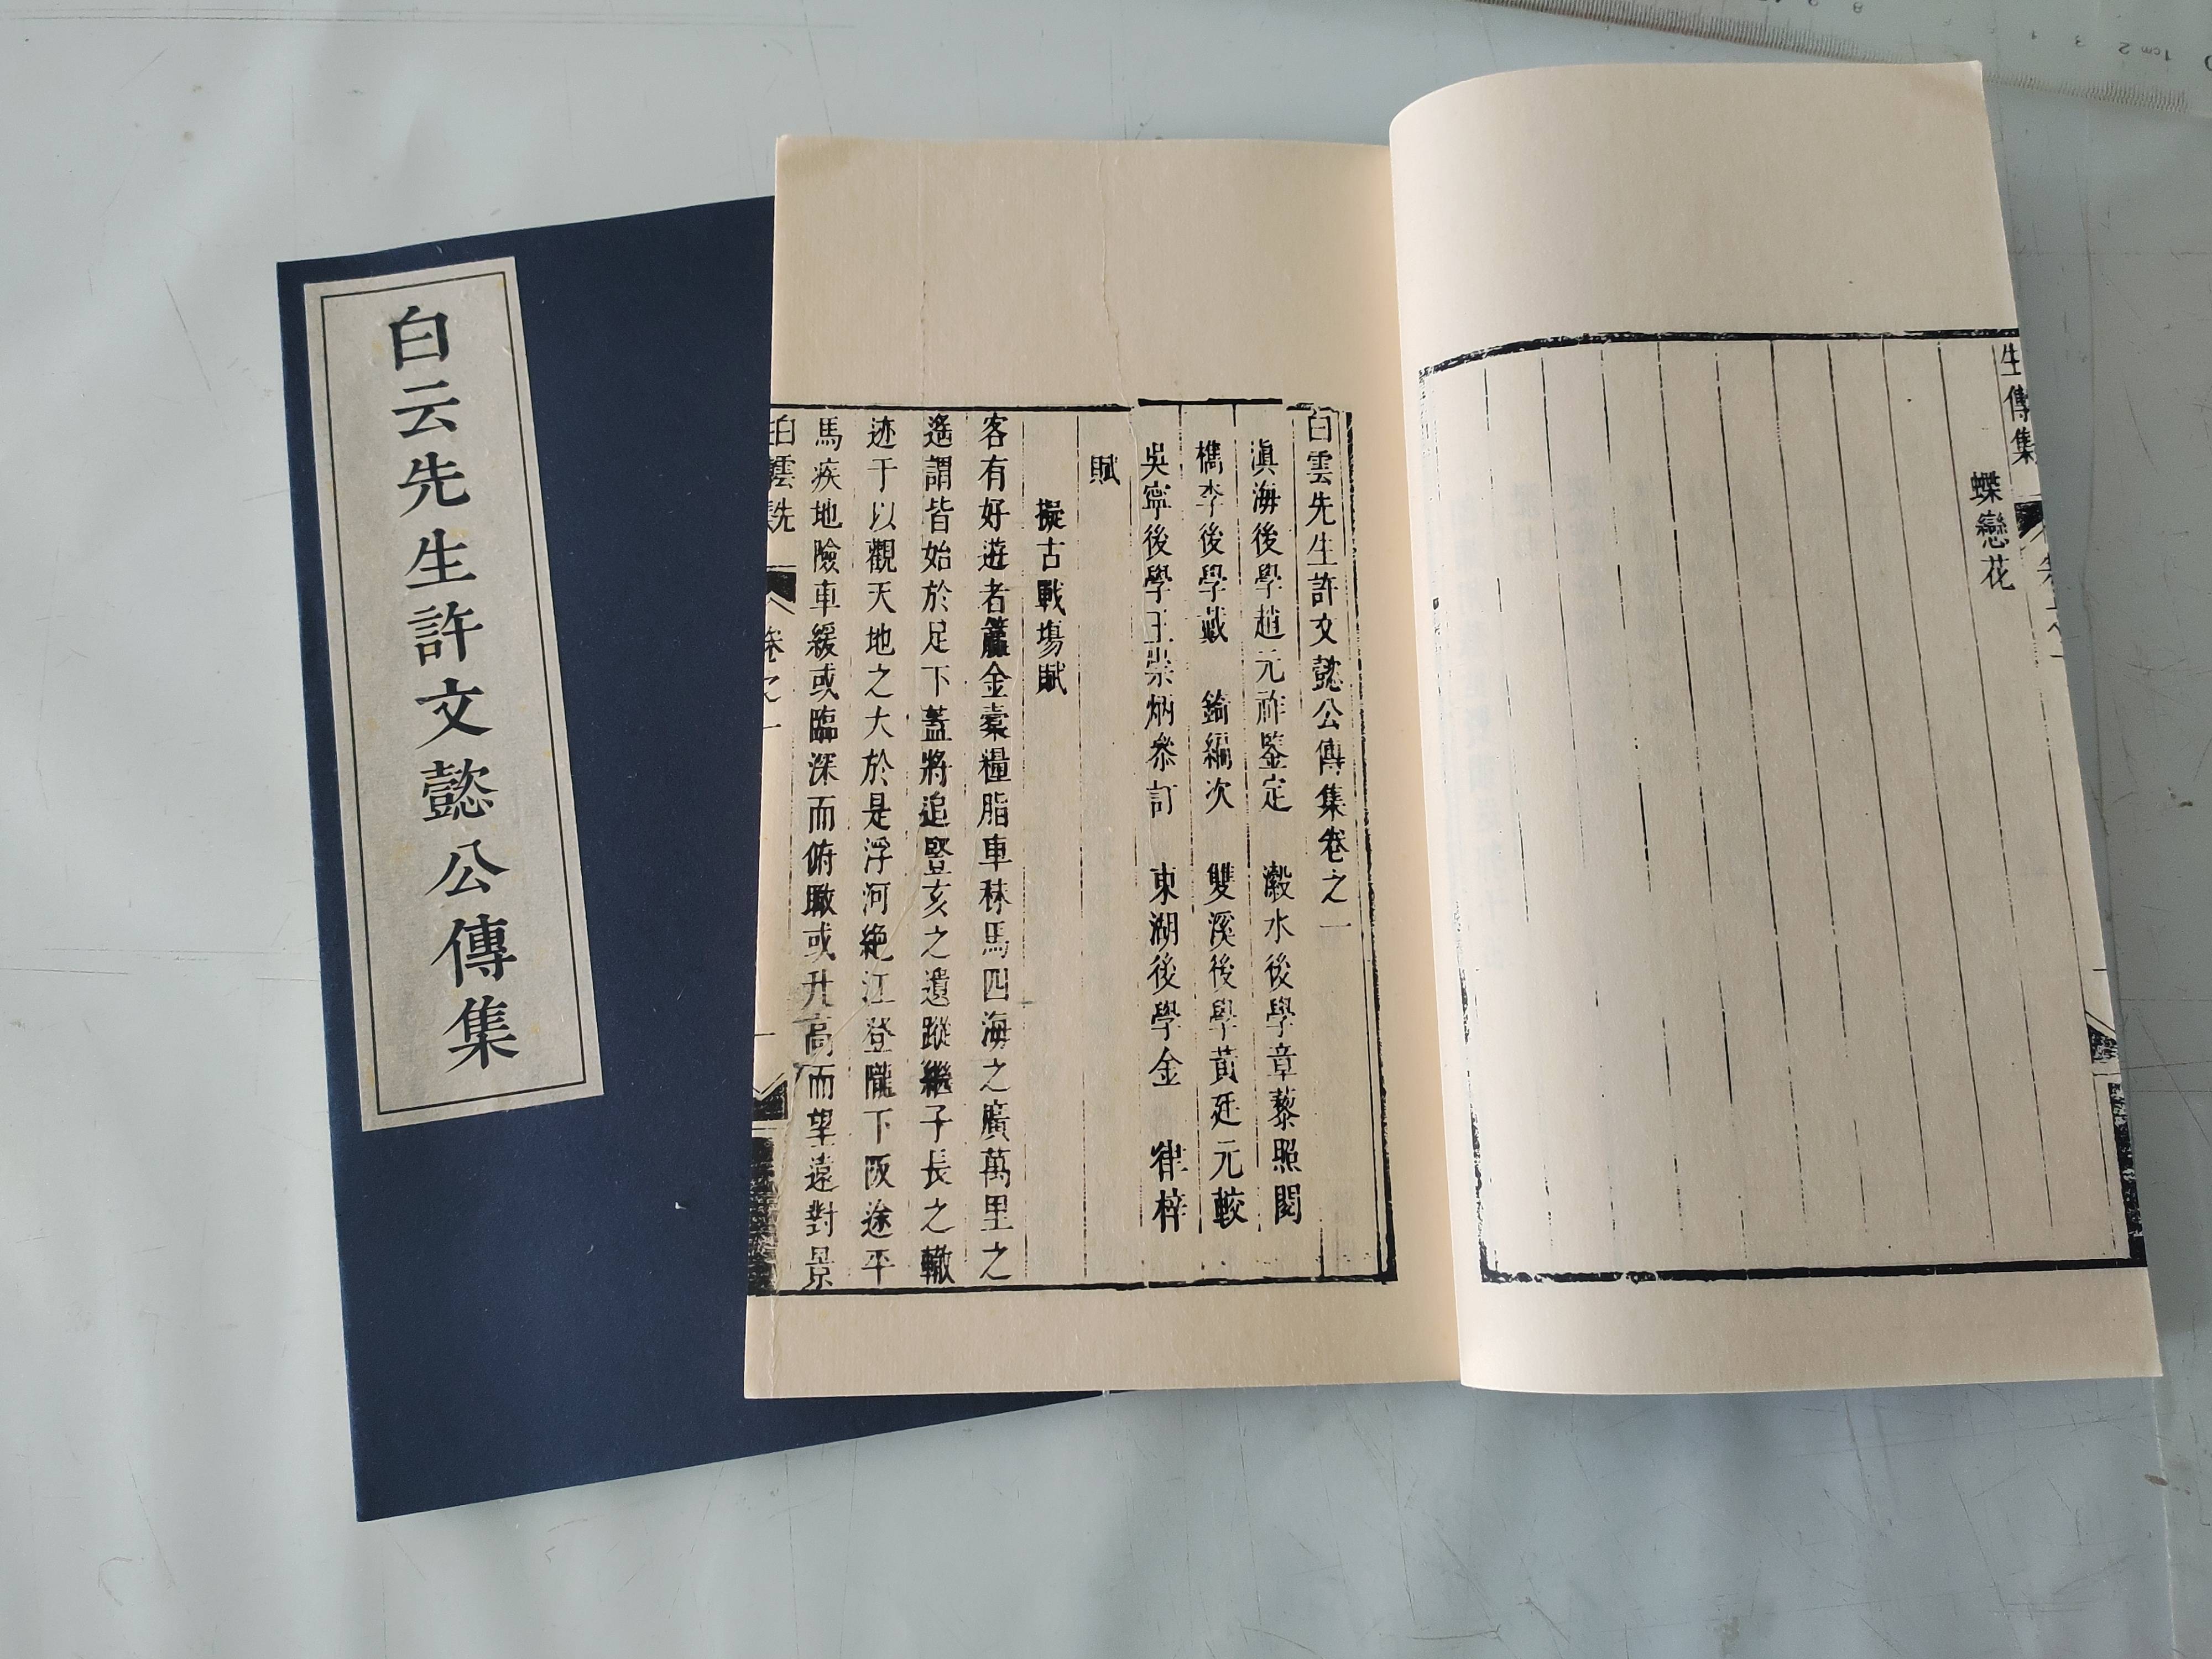 白云先生許文懿公傳集
生傳集
蝶戀花
白雲先生許文懿公傳集卷之一
滇海後學趙元祚鑒定 瀫水後學章藜照閱
檇李後學戴 錡編次 雙溪後學黃廷元較
吳寧後學王崇炳叅訂 東湖後學金 律梓
賦
擬古戰場賦
客有好遊者籯金橐糧脂車秣馬四海之廣萬里之
遙謂皆始於足下蓋將追豎亥之遺蹤繼子長之轍
迹于以觀天地之大於是浮河絶江登隴下阪途平
馬疾地險車緩或臨深而俯瞰或升高而望遠對景
白雲先
卷之一
一
1cm 2 3